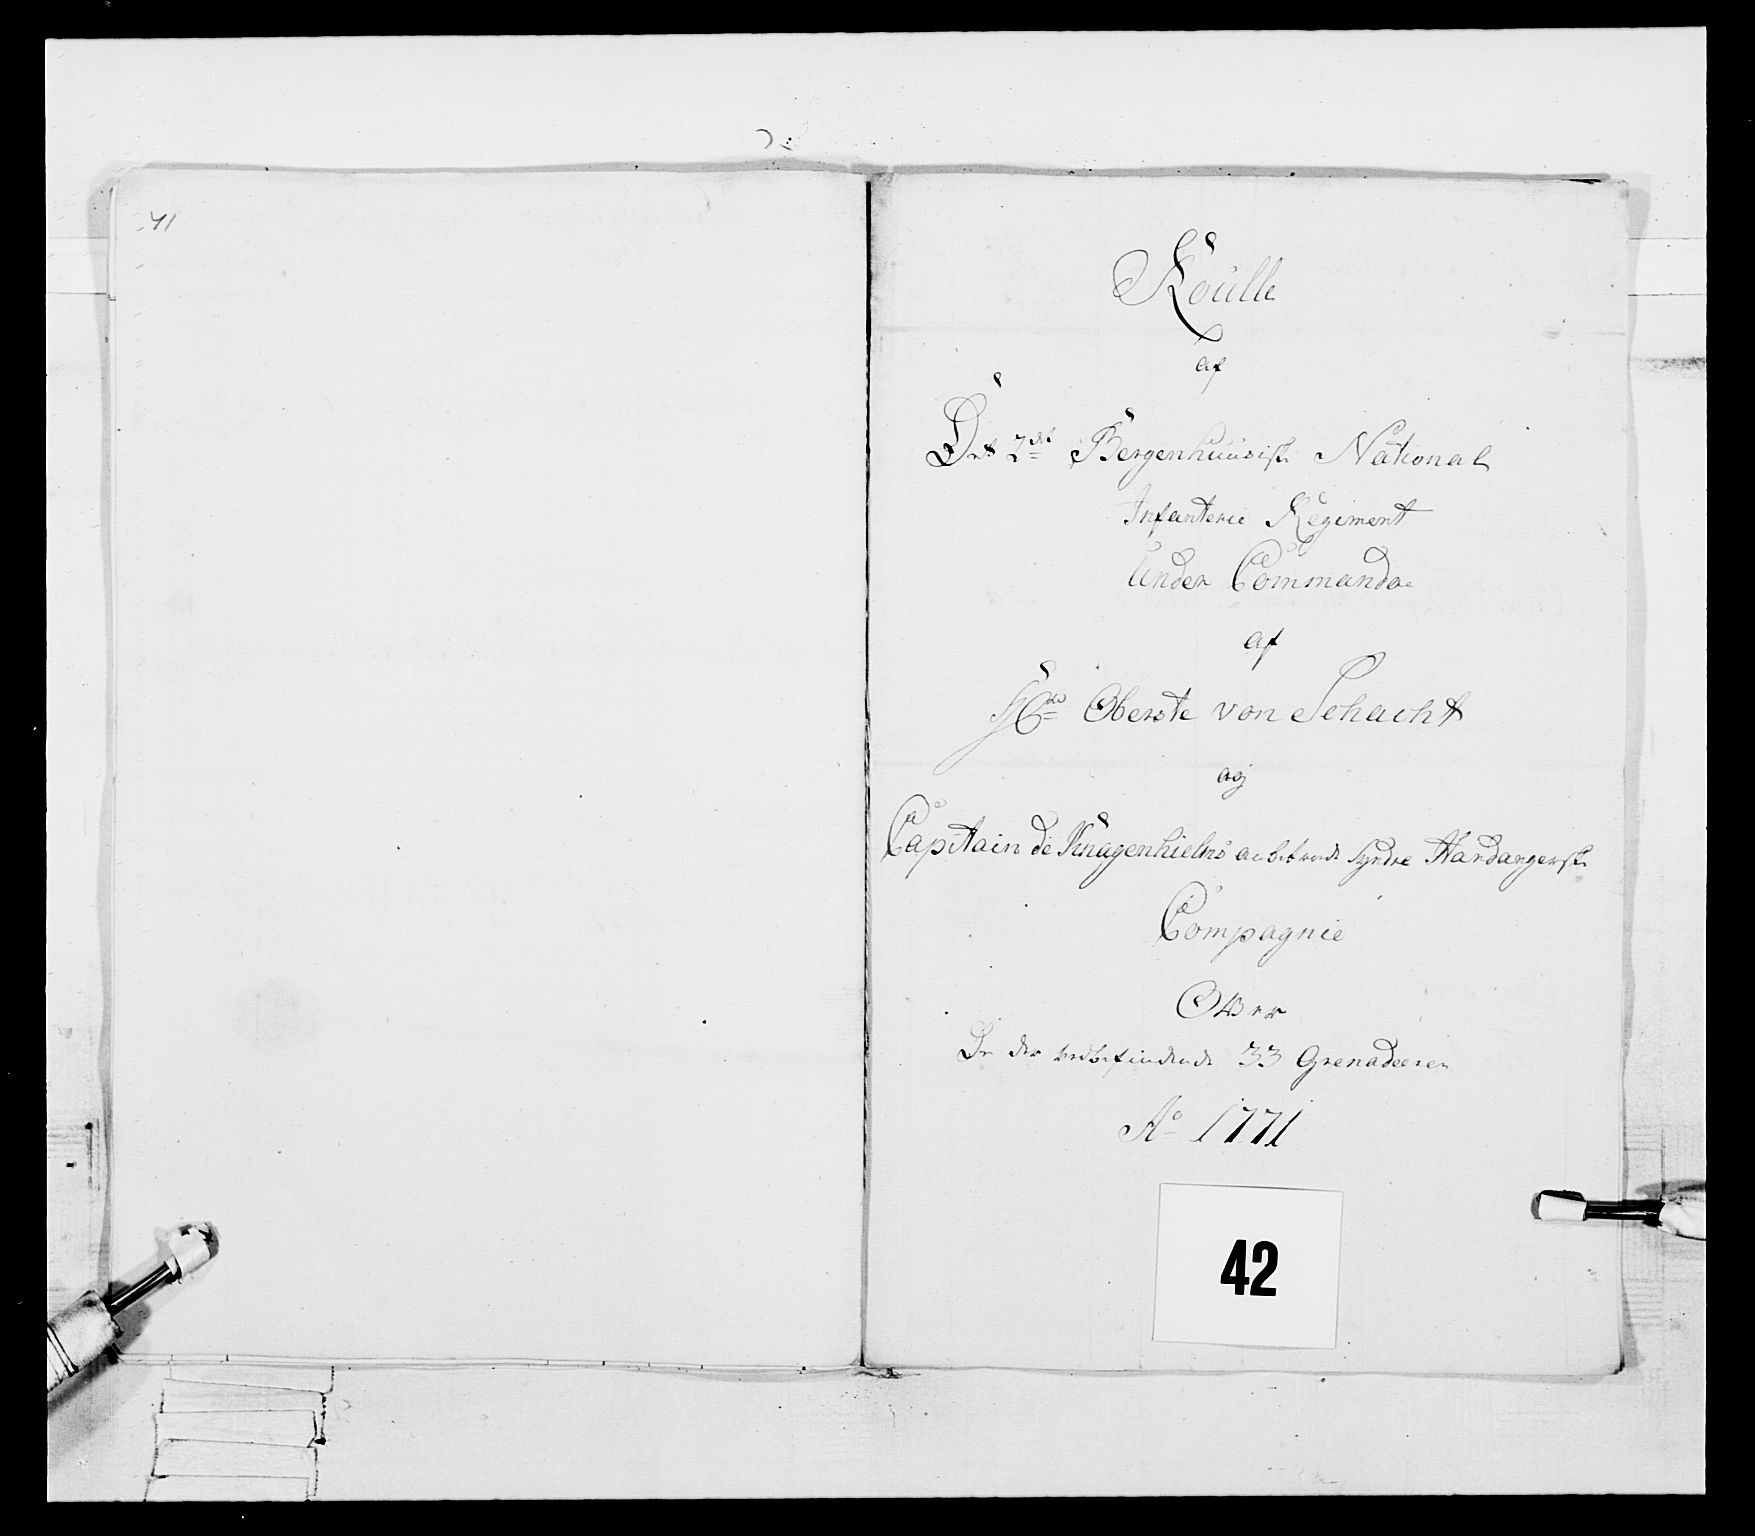 41
Roulle
af
Det 2det Bergenhuusiske National
Infanterie Regiment
Under Commando
af
Hr Oberste von Schacht
og
Capitain de Knagenhielms anbetroede Syndre Hardangerske
Compagnie
Over
De der vedbefindende 33 Grenadeerer
Ao 1771
42